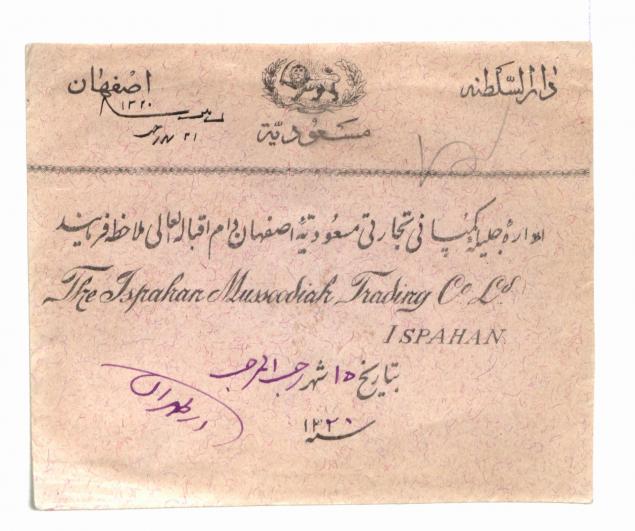 دارالسّلطنه
اصفهان
۱۳۲۰
۲۱ رجب
مسعودیّة
ادارهٔ جلیلهٔ کمپانی تجارتی مسعودیّهٔ اصفهان دام اقباله العالی ملاحظه فرمایند
The Ispahan Mussoodiah Trading Co Ld.
ISPAHAN.
بتاریخ ۱۵ شهر رجب المرجب
سنه ۱۳۲۰
از طهران